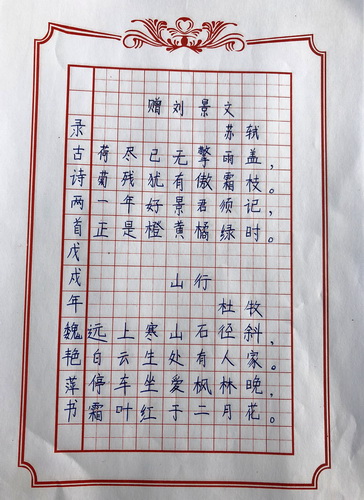 赠刘景文
苏轼
荷尽已无擎雨盖，
菊残犹有傲霜枝。
一年好景君须记，
正是橙黄橘绿时。
山行
杜牧
远上寒山石径斜，
白云生处有人家。
停车坐爱枫林晚，
霜叶红于二月花。
录古诗两首戊戌年魏艳萍书